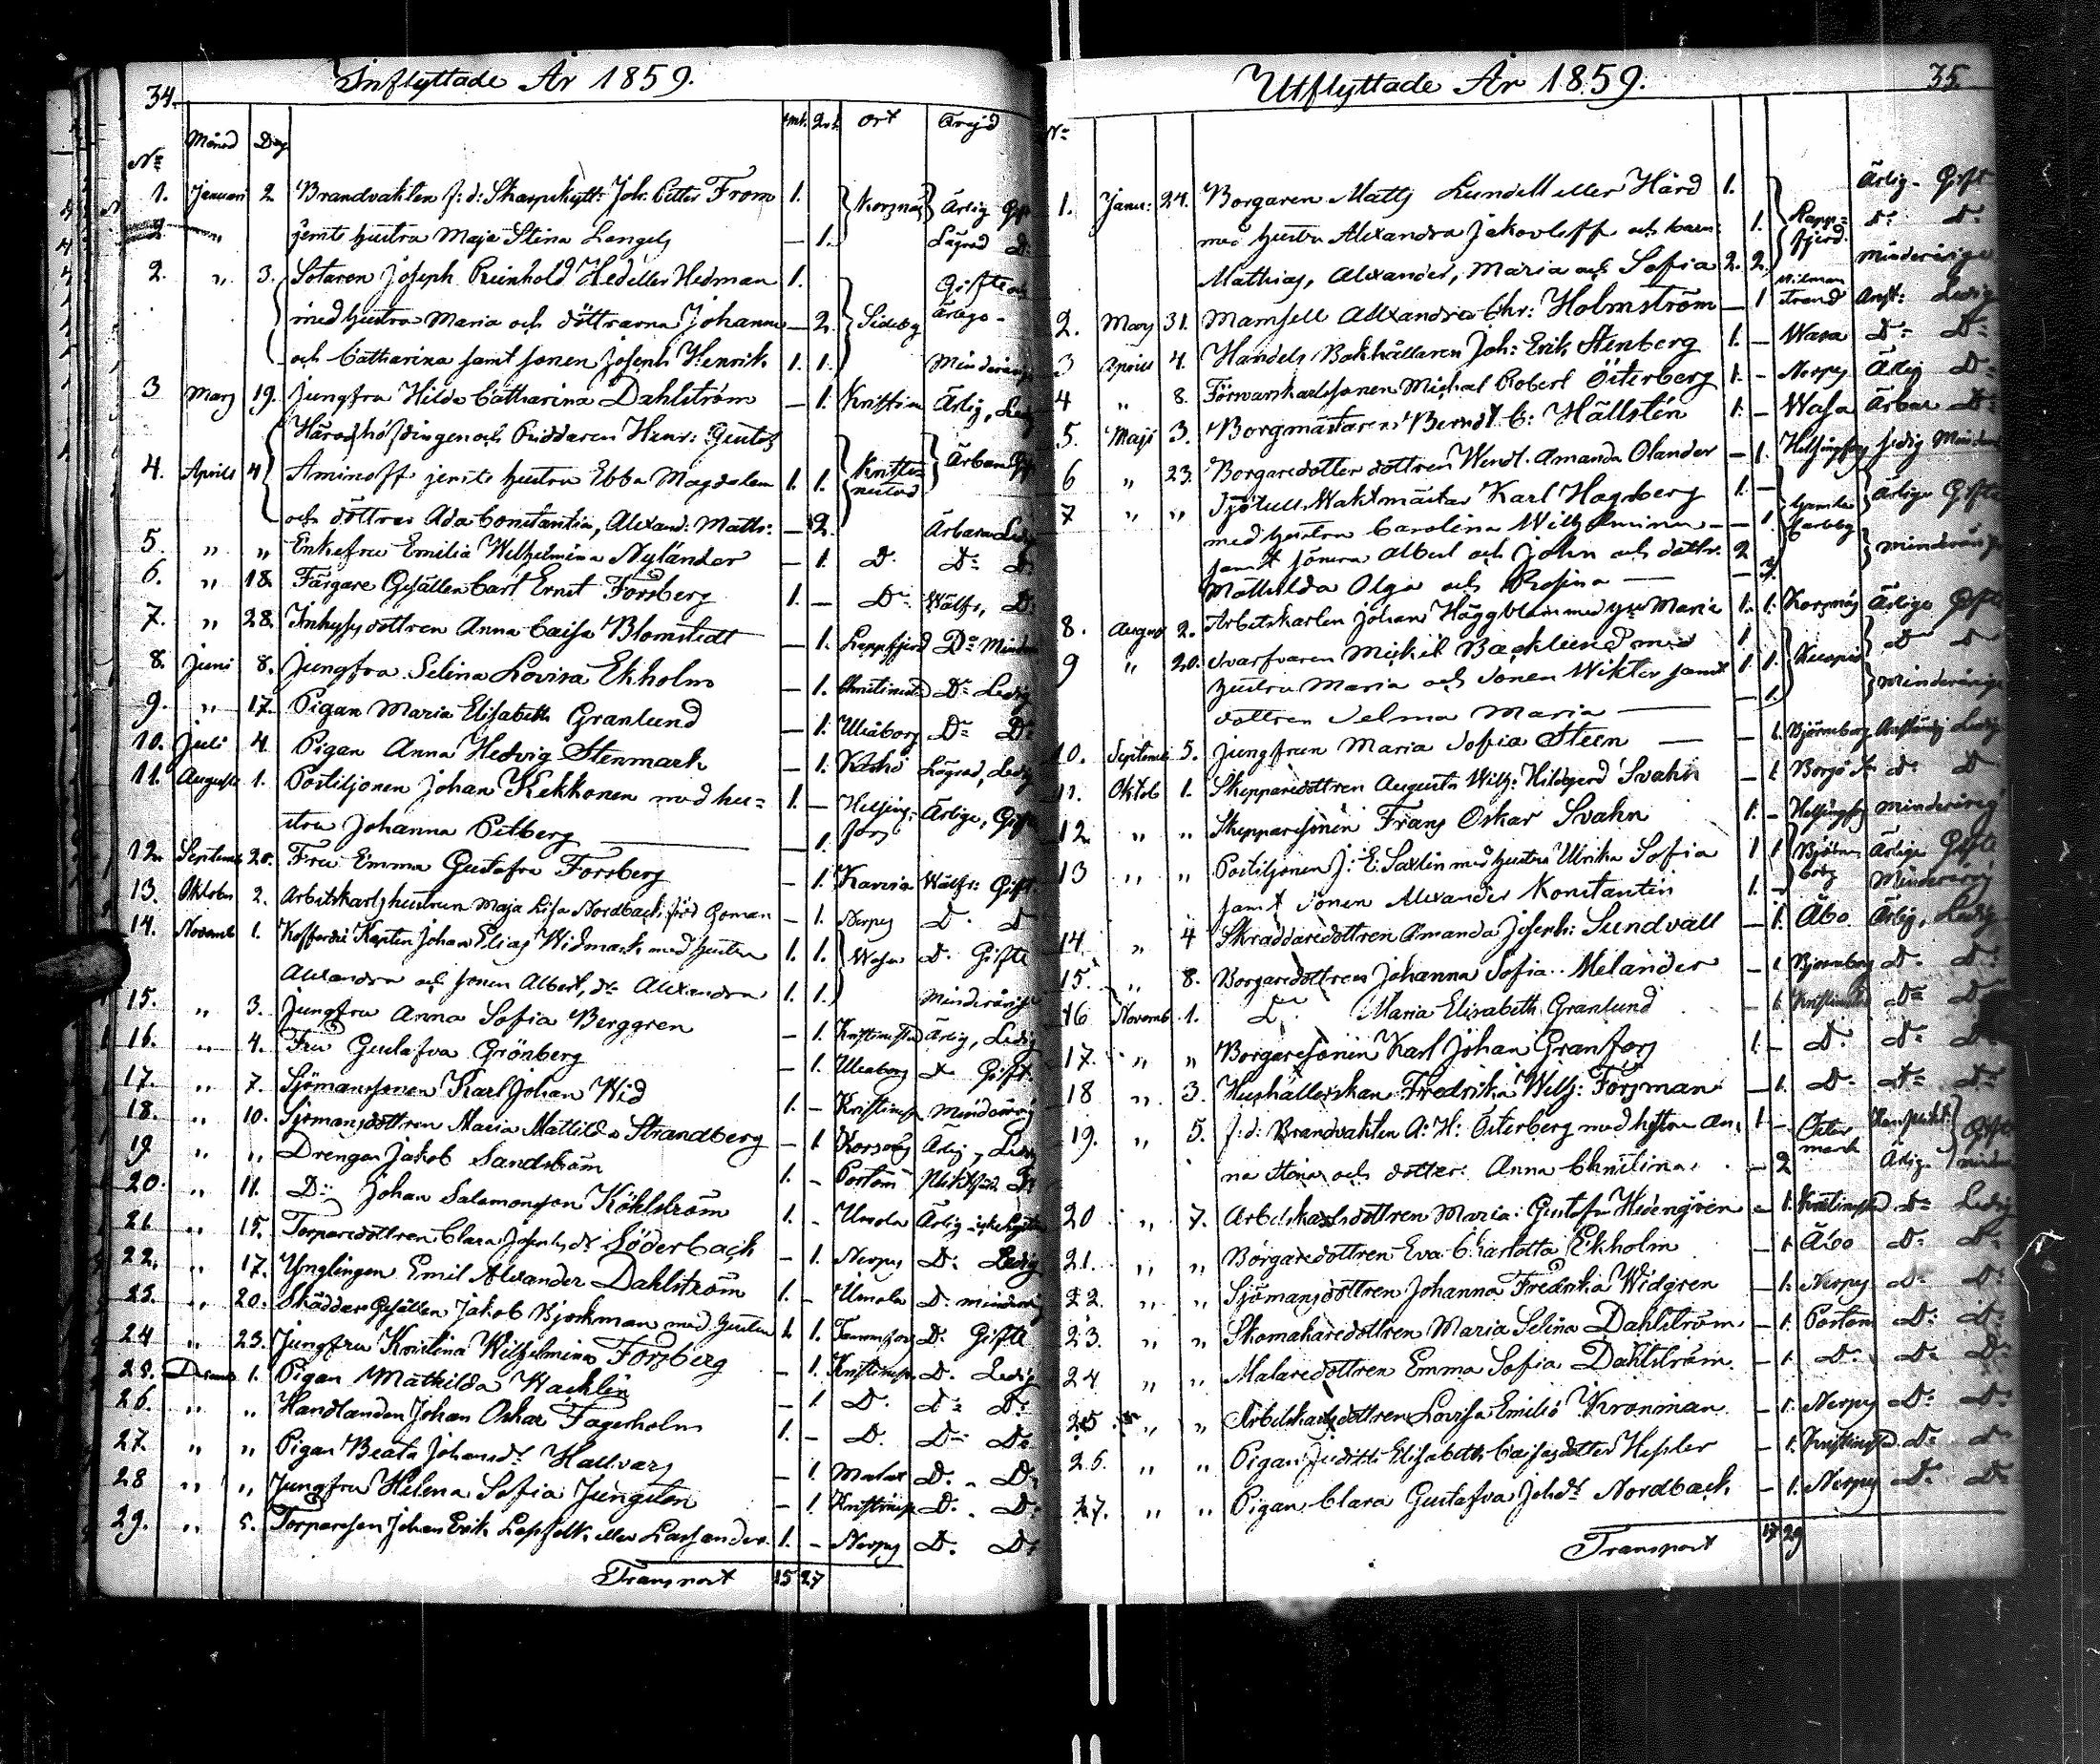 34.
Inflyttade År 1859.
No Månad Dag mk. Qvk. Ort Frejd
1. Januari 2. Brandvakten f: d: Skarpskytt: Joh: Petter From 1. Korsnäs Ärlig Gift
" jemte hustru Maja Stina Lengels — 1. D:
2. " 3. Sotaren Joseph Reinhold Hed eller Hedman 1. Gifte och
med hustru Maria och döttrarna Johanna — 2. Sideby ärlige
och Catharina samt sonen Joseph Henrik 1. 1. Minderårig
3 Mars 19. Jungfru Hilda Catharina Dahlström — 1. Kristina Ärlig, Ledig
Häradshöfdingen och Riddaren Henr: Gustaf
4. April 4 Aminoff jemte hustru Ebba Magdalena 1. 1. Kristinestad Ärbara Gift
och döttrar Ada Constantia, Alexand: Math: — 2.
5. " " Enkefru Emilia Wilhelmina Nylander — 1. D: Ärbara Ledig
6. " 18. Färgare Gesällen Carl Ernst Forsberg 1. — D: Wälfr, D:
7. " 28. Inhysesdottren Anna Caisa Blomstedt — 1. Lappfjerd D: Minder
8. Juni 8. Jungfru Selina Lovisa Ekholm — 1. Christinestad D: Ledig
9. " 17. Pigan Maria Elisabeth Granlund — 1. Uleåborg D: D:
10. Juli 4. Pigan Anna Hedvig Stenmark — 1. Ledig
11. Augusti 1. Postiljonen Johan Kekkonen med hu= 1. — Helsing- Ärlige, Gifte
stru Johanna Petberg — 1. fors
12. Septemb 20. Fru Emma Gustafva Forsberg — 1. Karvia Wälfr: Gift.
13. Oktober 2. Arbetskarlshustrun Maja Lisa Nordback född Goman — 1. Nerpes D: D
14. Novemb 1. Kofferdie Kapten Johan Elias Widmark med hustru 1. 1. Wasa D: Gifte
Alexandra och sonen Albert, dr Alexandra 1. 1. Minderårige
15. " 3. Jungfru Anna Sofia Berggren — 1. Kristinestad Ärlig, Ledig
16. " 4. Fru Gustafva Grönberg — 1. Uleåborg D: Gift:
17. " 7. Sjömanssonen Karl Johan Wid 1. — Kristinest Minderårig
18. " 10. Sjömansdottren Maria Mathilda Strandberg — 1. Korsnäs Ärlig, Ledig
19 " " Drengen Jakob Sandström 1. — Portom D:
20. " 11. D:o Johan Salomonsson Köhlström 1. — Umola Ärlig
21. " 15. Torparedottren Clara Josephsdr Söderback — 1. Nerpes D: Ledig
22. " 17. Ynglingen Emil Alexander Dahlström 1. — Umola D: minderårig
23. " 20. Skräddare Gesällen Jakob Björkman med hustru 1. 1. Tammerfors D: Gifte
24 " 23. Jungfru Kristina Wilhelmina Forsberg — 1. Kristinest. D: Ledig
25. Decemb 1. Pigan Mathilda Wacklin — 1 D. D: D:
26. " " Handlanden Johan Oskar Fagerholm 1. — D. D: D:
27. " " Pigan Beata Johansdr Hallvars — 1. Malax D: D:
28 " " Jungfru Helena Sofia Ljungsten — 1. Kristinest D: D:
29. " 5. Torparesson Johan Erik Lassfolk eller Lassander 1. — Nerpes D: D:
Transport 15 27
Utflyttade År 1859.
35.
No
1. Janu: 24. Borgaren Matts Lundell eller Hård 1. Ärlig - Gift
med hustru Alexandra Jakovleff och barn 1. Lapp= D: D:
Mathias, Alexander, Maria och Sofia 2. 2. fjerd. minderårige
2. Mars 31. Mamsell Alexandra Chr: Holmström — 1 strand Anst: Ledig
3 April 4. Handels Bokhållaren Joh: Erik Stenberg 1. — Wasa D: D:
4 " 8. Förvarskarlssonen Michael Robert Österberg 1. — Nerpes Ärlig D:
5. Maji 3. Borgmästaren Berndt C: Hällsten 1. — Wasa Ärbar D:
6 " 23. Borgaredotter dottren Wendl: Amanda Olander — 1. Helsingfors ledig Minder
7 " " Sjötull Waktmästar Karl Hagberg 1. — Gamla Ärlige Gifte
med hustru Carolina Wilhelmina — 1. Karleby
samt sönerna Albert och John och döttr. 2 minderårige
Mathilda Olga och Rosina — 3.
8. August 2. Arbetskarlen Johan Häggblom med hu Maria 1. 1. Korsnäs Ärlige Gifte
9 " 20. Svarfvaren Mickel Backlund med 1 Kuopio D D
hustru Maria och sonen Wiktor samt 1 1. minderårige
dottren Selma Maria — 1.
10. Septemb 5. Jungfrun Maria Sofia Steen — 1. Björneborg Anständig Ledig
11. Oktob 1. Skepparedottren Augusta Wilh: Hildegard Svahn — 1. Borgå D: D
12 " " Skepparesonen Frans Oskar Svahn 1. — Helsingfors minderårig
13 " " Postiljonen J: E: Saxlin med hustru Ulrika Sofia 1 1 Björne- Ärlige Gifte
samt sonen Alexander Konstantin 1. — borg Minderårig
14 " 4 Skräddaredottren Amanda Joseph: Sundvall — 1. Åbo Ärlig, Ledig
15. " 8. Borgaredottren Johanna Sofia Melander — 1 Björneborg D: D:
16 Novemb 1. D: Maria Elisabeth Granlund — 1. Kristinestad D: D:
17. " " Borgaresonen Karl Johan Granfors 1. — D: D: D:
18 " 3. Hushållerskan Fredrika Wilh: Forsman — 1. D: D: D:
19. " 5. f: d: Brandvakten A: H: Österberg med hustru An, 1 — Öster Gift
na Stina och dotter: Anna Christina — 2 mark Ärlig minder
20 " 7. Arbetskarlsdottren Maria Gustafva Hedengren — 1. Kristinestad D: Ledig
21. " " Borgaredottren Eva Charlotta Ekholm — 1 Åbo D: D:
22. " " Sjömansdottren Johanna Fredrika Widgren — 1. Nerpes D: D:
23. " " Skomakaredottren Maria Selina Dahlström — 1. Portom D: D:
24 " " Malaredottren Emma Sofia Dahlström — 1. D: D: D:
25 " " Arbetskarlsdottren Lovisa Emilia Kronman — 1. Nerpes D: D:
26. " " Pigan Judith Elisabeth Caisasdotter Hesler — 1. Kristinestad D: D
27. " " Pigan Clara Gustafva Johsdr Nordback — 1. Nerpes D: D:
Transport 17 29